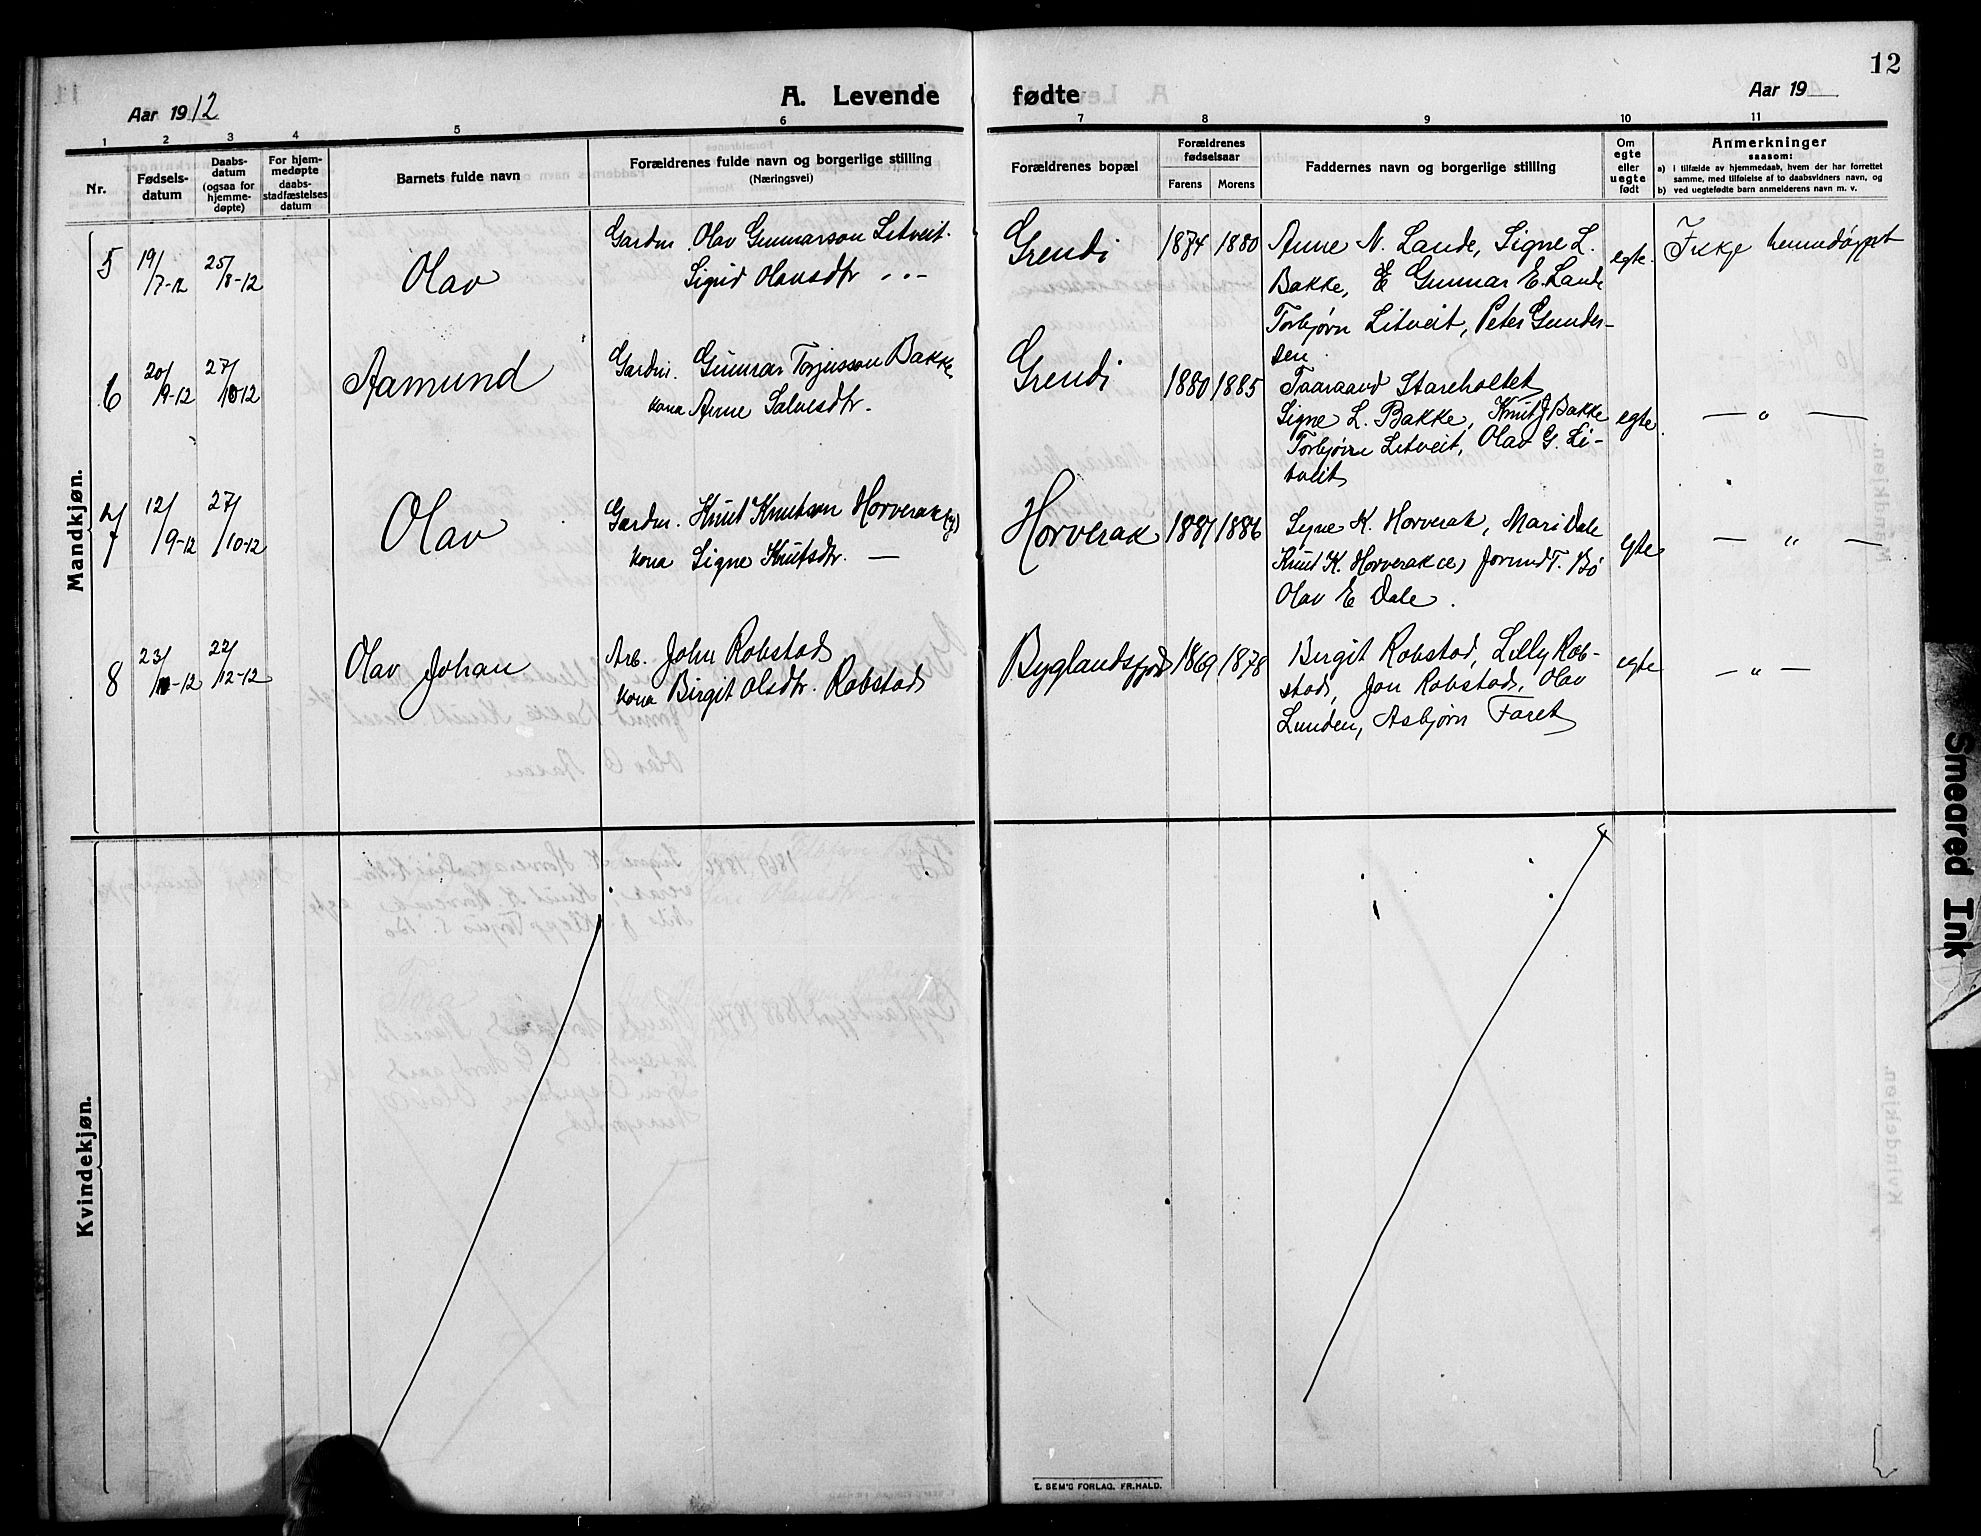 12
Aar 1912
A. Levende fødte
Aar 19
1 2 3 4 5 6 7 8 9 10 11
Nr.
Fødsels-
datum
Daabs-
datum
(ogsaa for
hjemme-
døpte)
For hjem-
medøpte
daabs-
stadfæstelses
datum
Barnets fulde navn
Forældrenes fulde navn og borgerlige stilling
(Næringsvei)
Forældrenes bopæl
Forældrenes
fødselsaar
Farens Morens
Faddernes navn og borgerlige stilling
Om
egte
eller
uegte
født
Anmerkninger
saasom:
a) i tilfælde av hjemmedaab, hvem der har forrettet
samme, med tilføielse af to daabsvidners navn, og
b) ved uegtefødte barn anmelderens navn m. v.
Mandkjøn.
5 19/7-12 25/8-12 Olav
Gardm. Olav Gunnarson Litveit.
Sigrid Olavsdtr " "
Grendi 1874 1880
Anne N. Lande, Signe L.
Bakke, E Gunnar E. Lande
Torbjørn Litveit, Peter Gunder-
sen
egte.
Ikkje heimdøypt
6 20/9-12 27/10-12 Aamund
Gardm. Gunnar Torjusson Bakke
kona Anne Salvesdtr.
Grendi 1880 1885
Taaraand Stareholtet
Signe L. Bakke, Knut J Bakke
Torbjørn Litveit, Olav G. Li-
tveit
egte.
— " —
7 12/9-12 27/10-12 Olav
Gardm. Knut Knutson Horverak
kona Signe Knutsdtr. —
Horverak 1881 1886
Sygne K. Horverak, Mari Dale
Knut K. Horverak Jorund T. Bø
Olav E Dale.
egte
— " —
8 23/-12 22/12-12 Olav Johan
Arb. John Robstad
kona Birgit Olsdtr. Robstad
Byglandsfjord 1869 1878
Birgit Robstad, Lilly Rob-
stad, Jon Robstad, Olav
Lunden, Asbjørn Faret
egte
— " —
Kvindekjøn.
E. SEM'S FORLAG. FR.HALD.
Smeared Ink